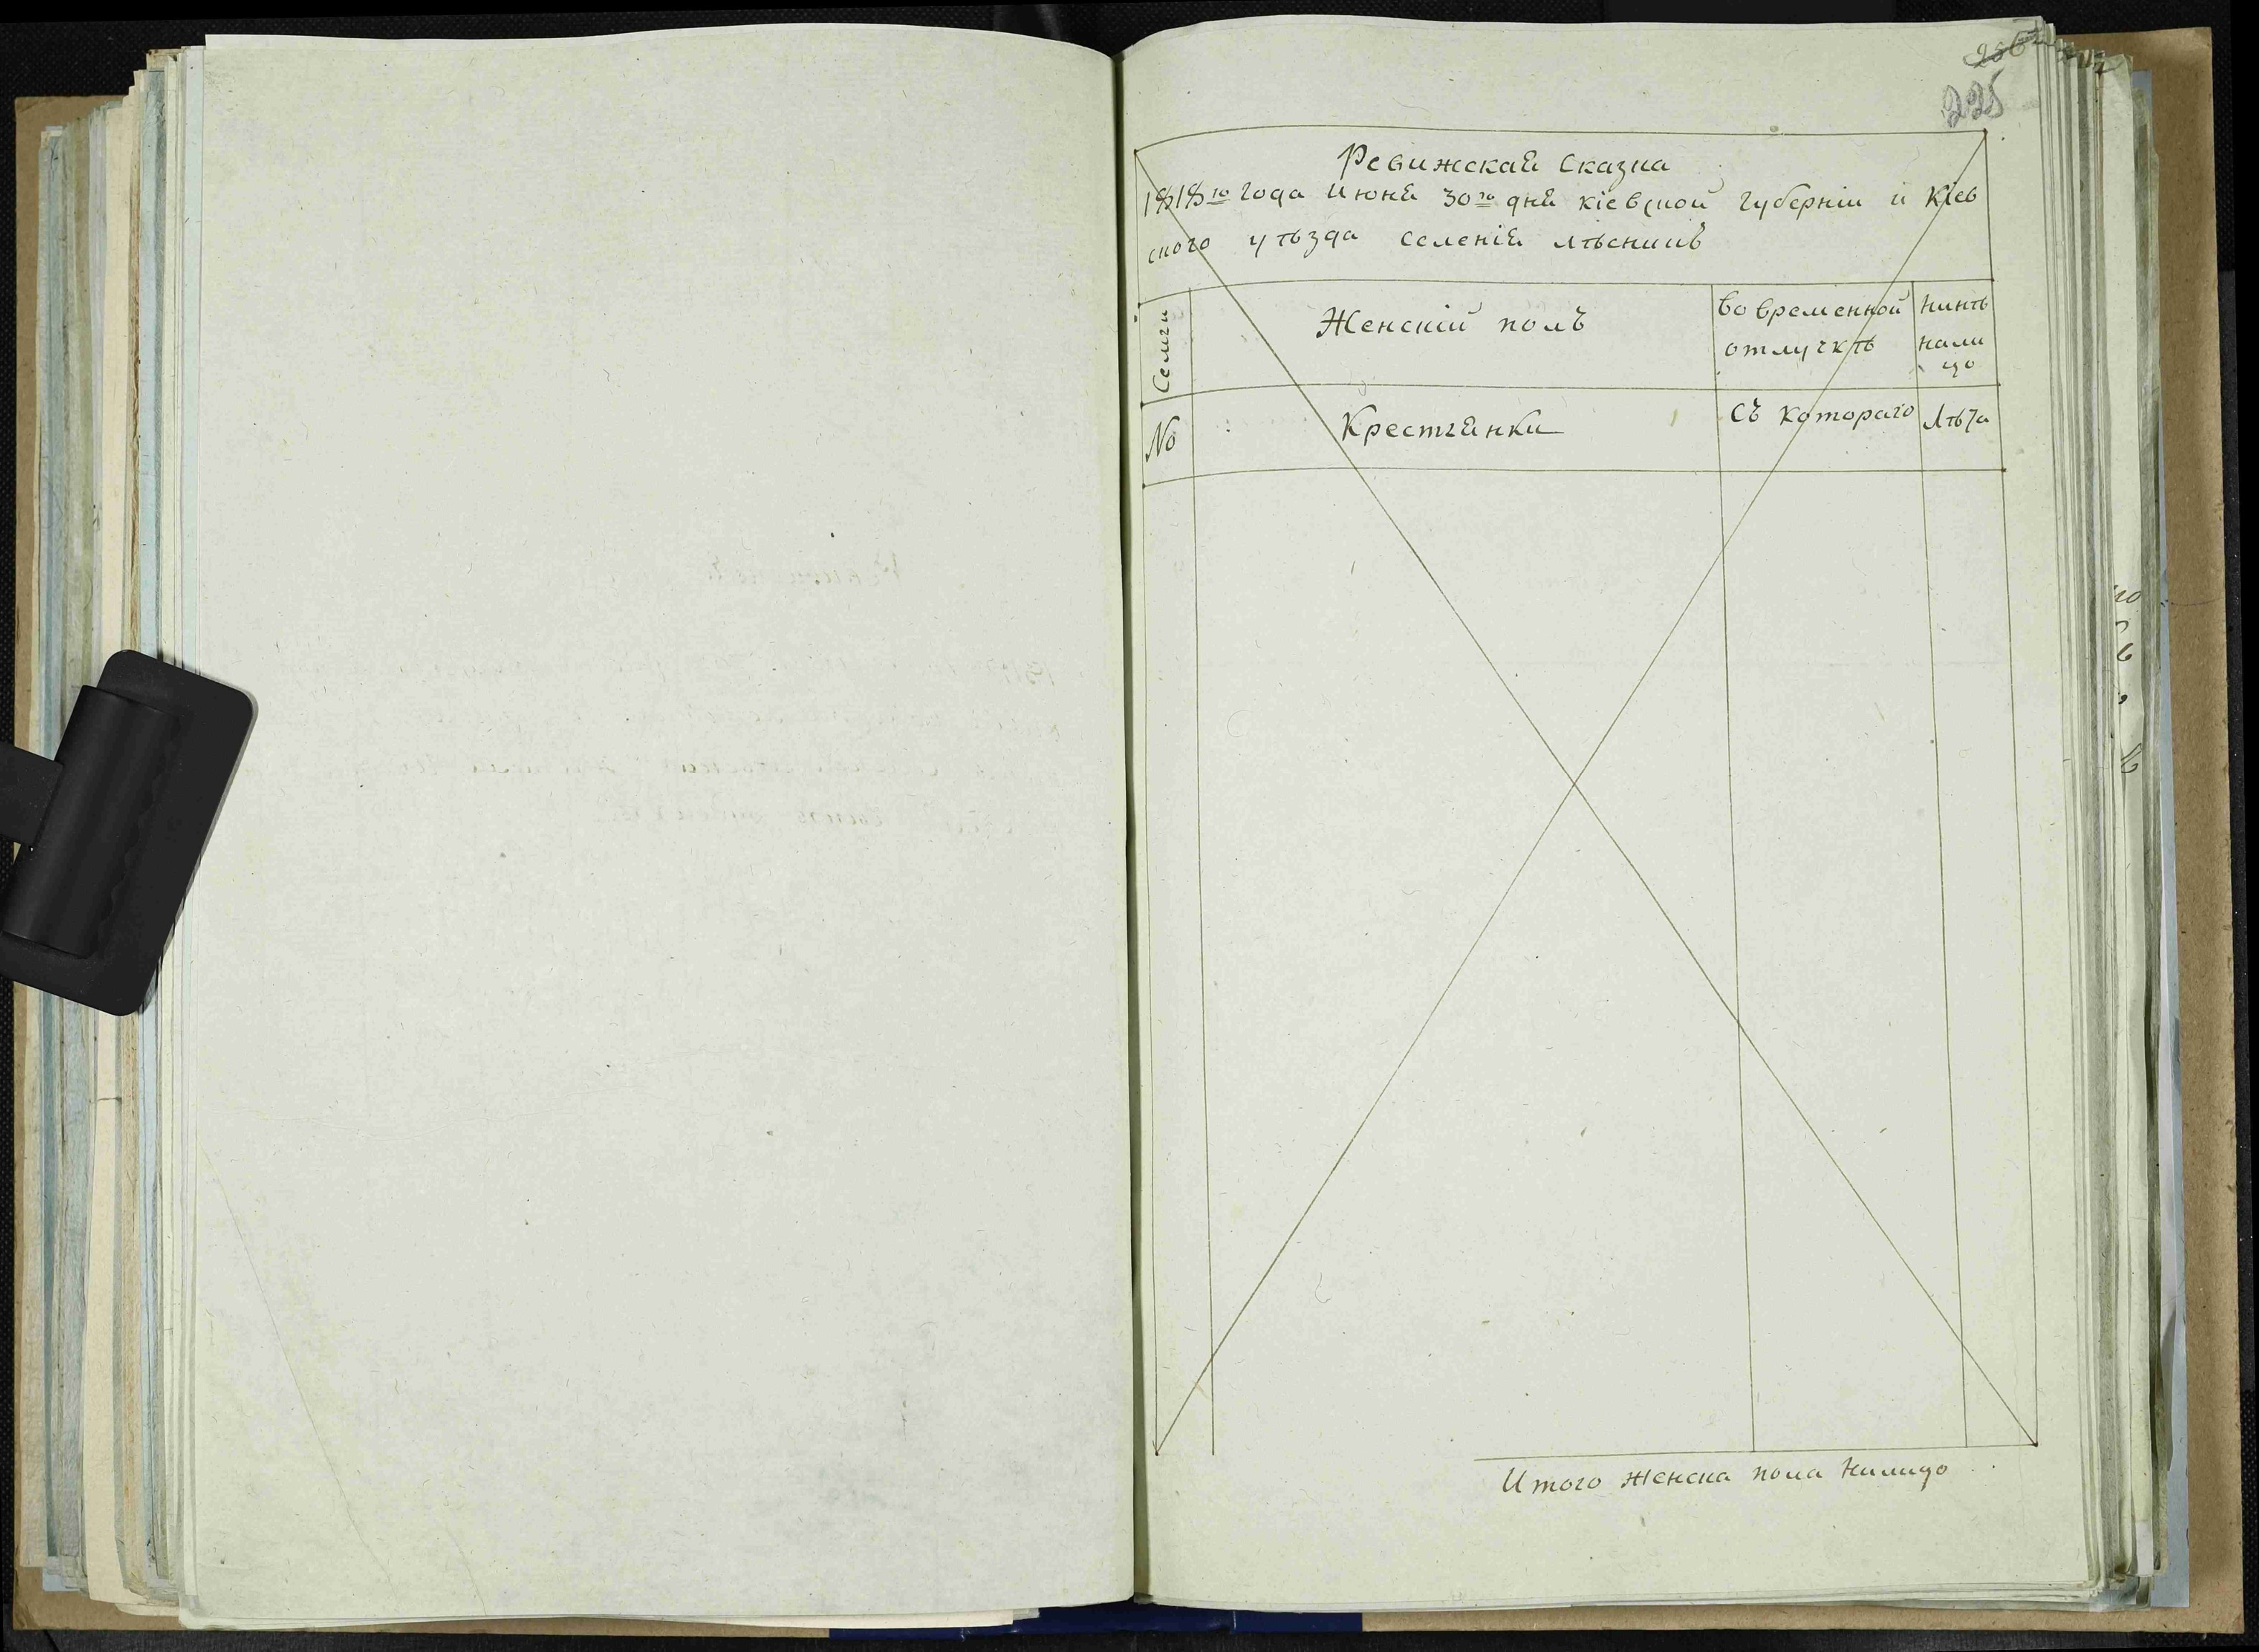 225
Ревижская Сказка
1818го года Июня 30го дня кіевской губерніи и Кіев
ского уѣзда селенія лѣсникѣ
Семьги
Женскій полъ
Во временной
отлучкѣ
Нинѣ
нали
цо
No
Крестгянки
Съ котораго
Лѣта
Итого женска пола Налицо